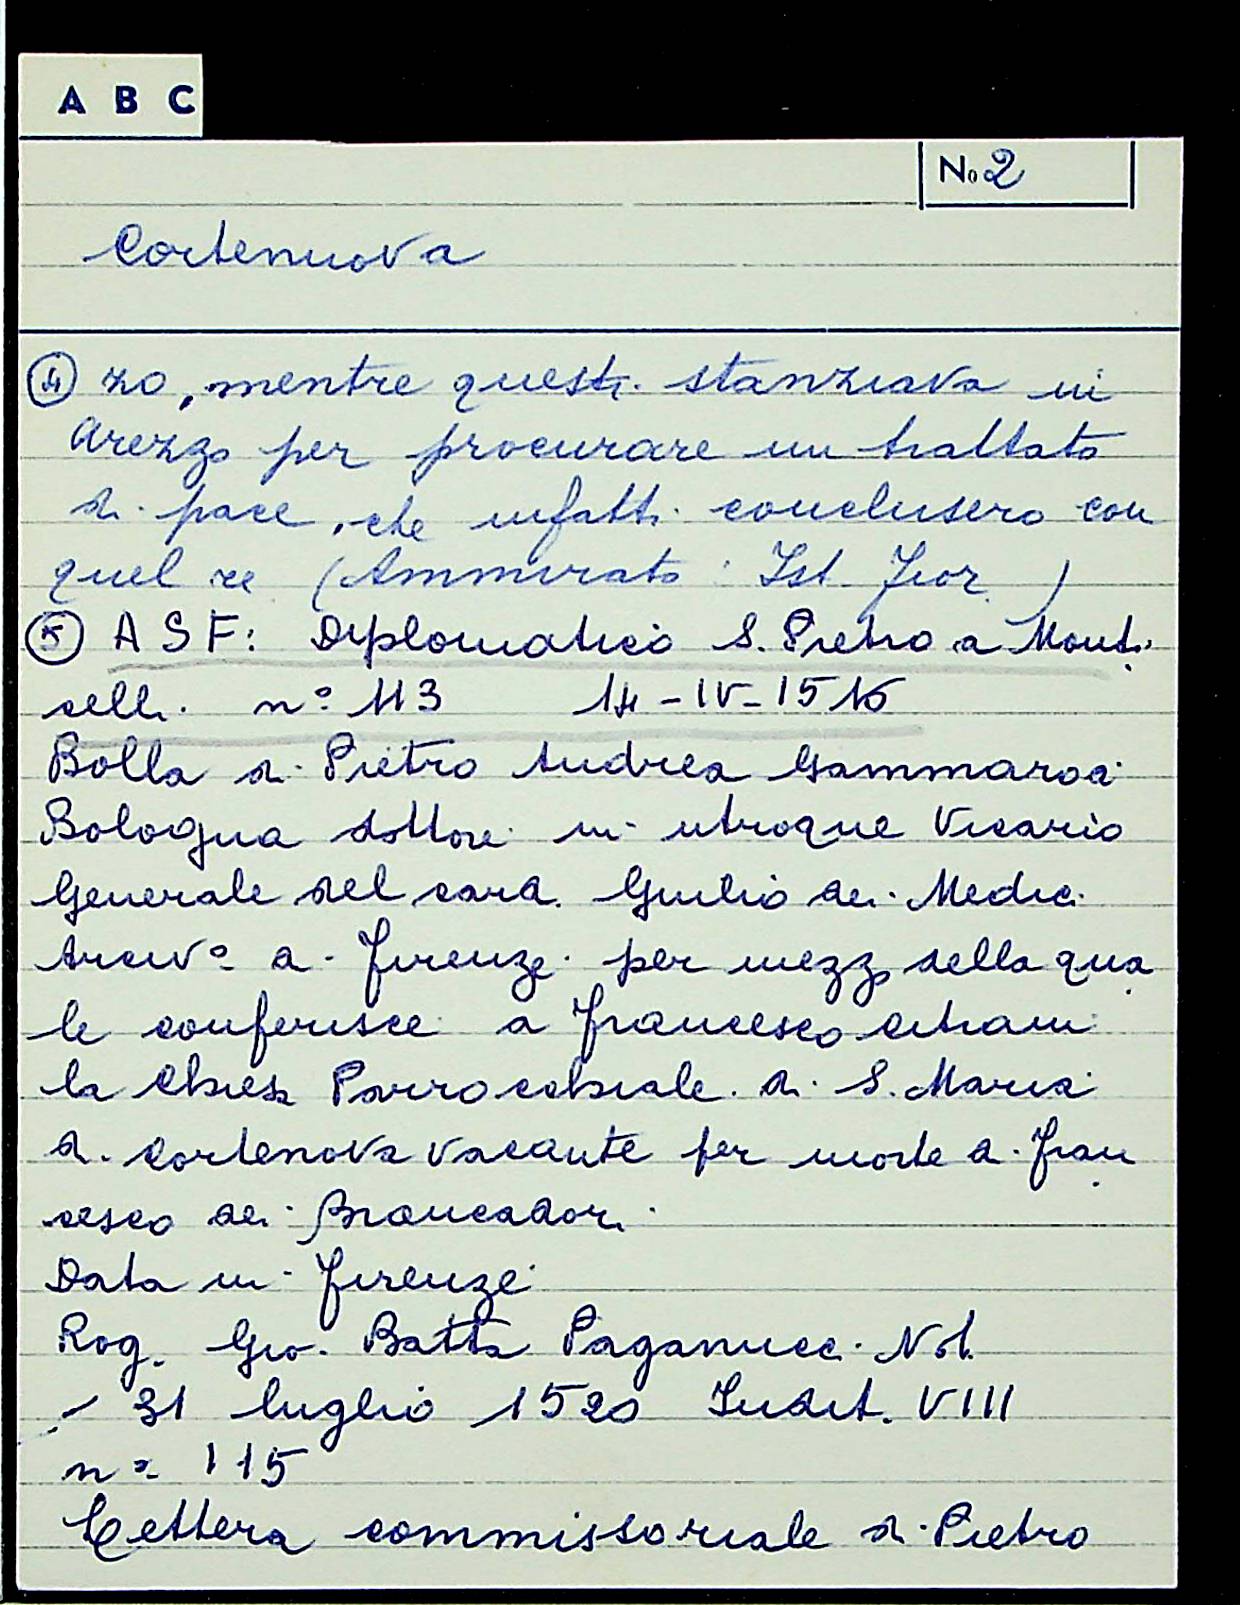 A B C
No 2
Cortenuova
④ zo, mentre questi stanziava in
Arezzo per procurare un trattato
di pace, che infatti conclusero con
quel re (Ammirato: Ist. Fior.)
⑤ A S F: Diplomatico S. Pietro a Monti
celli. n° 113 14-IV-1516
Bolla di Pietro Andrea Gammaro di
Bologna dottore in utroque Vicario
Generale del card. Giulio dei Medici
Arciv° di Firenze per mezzo della qua
le conferisce a Francesco
la Chiesa Parrocchiale di S. Maria
di Cortenova vacante per morte di Fran
cesco dei Brancadori
Data in Firenze
Rog. Gio. Batta Paganucci Not.
- 31 luglio 1520 Indit. VIII
n° 115
Lettera commissoriale di Pietro